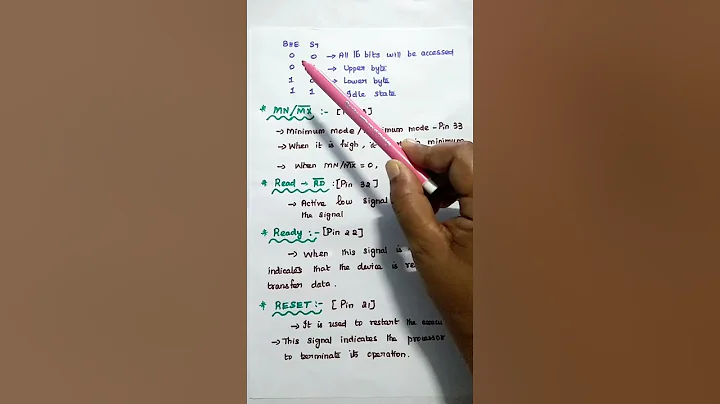 BHE S7
0 0 → All 16 bits will be accessed
0 → Upper byte
1 0 → Lower byte
1 1 → Idle state
* MN/MX :- [
→ Minimum mode / mode - Pin 33
→ When it is high, minimum
→ When MN/MX = 0,
* Read → RD :[Pin 32]
→ Active low signal
the signal
* Ready :- [Pin 22]
→ When this signal is
indicates that the device is
transfer data.
* RESET :- [Pin 21]
→ It is used to restart the
→ This signal indicates the processor
to terminate its operation.